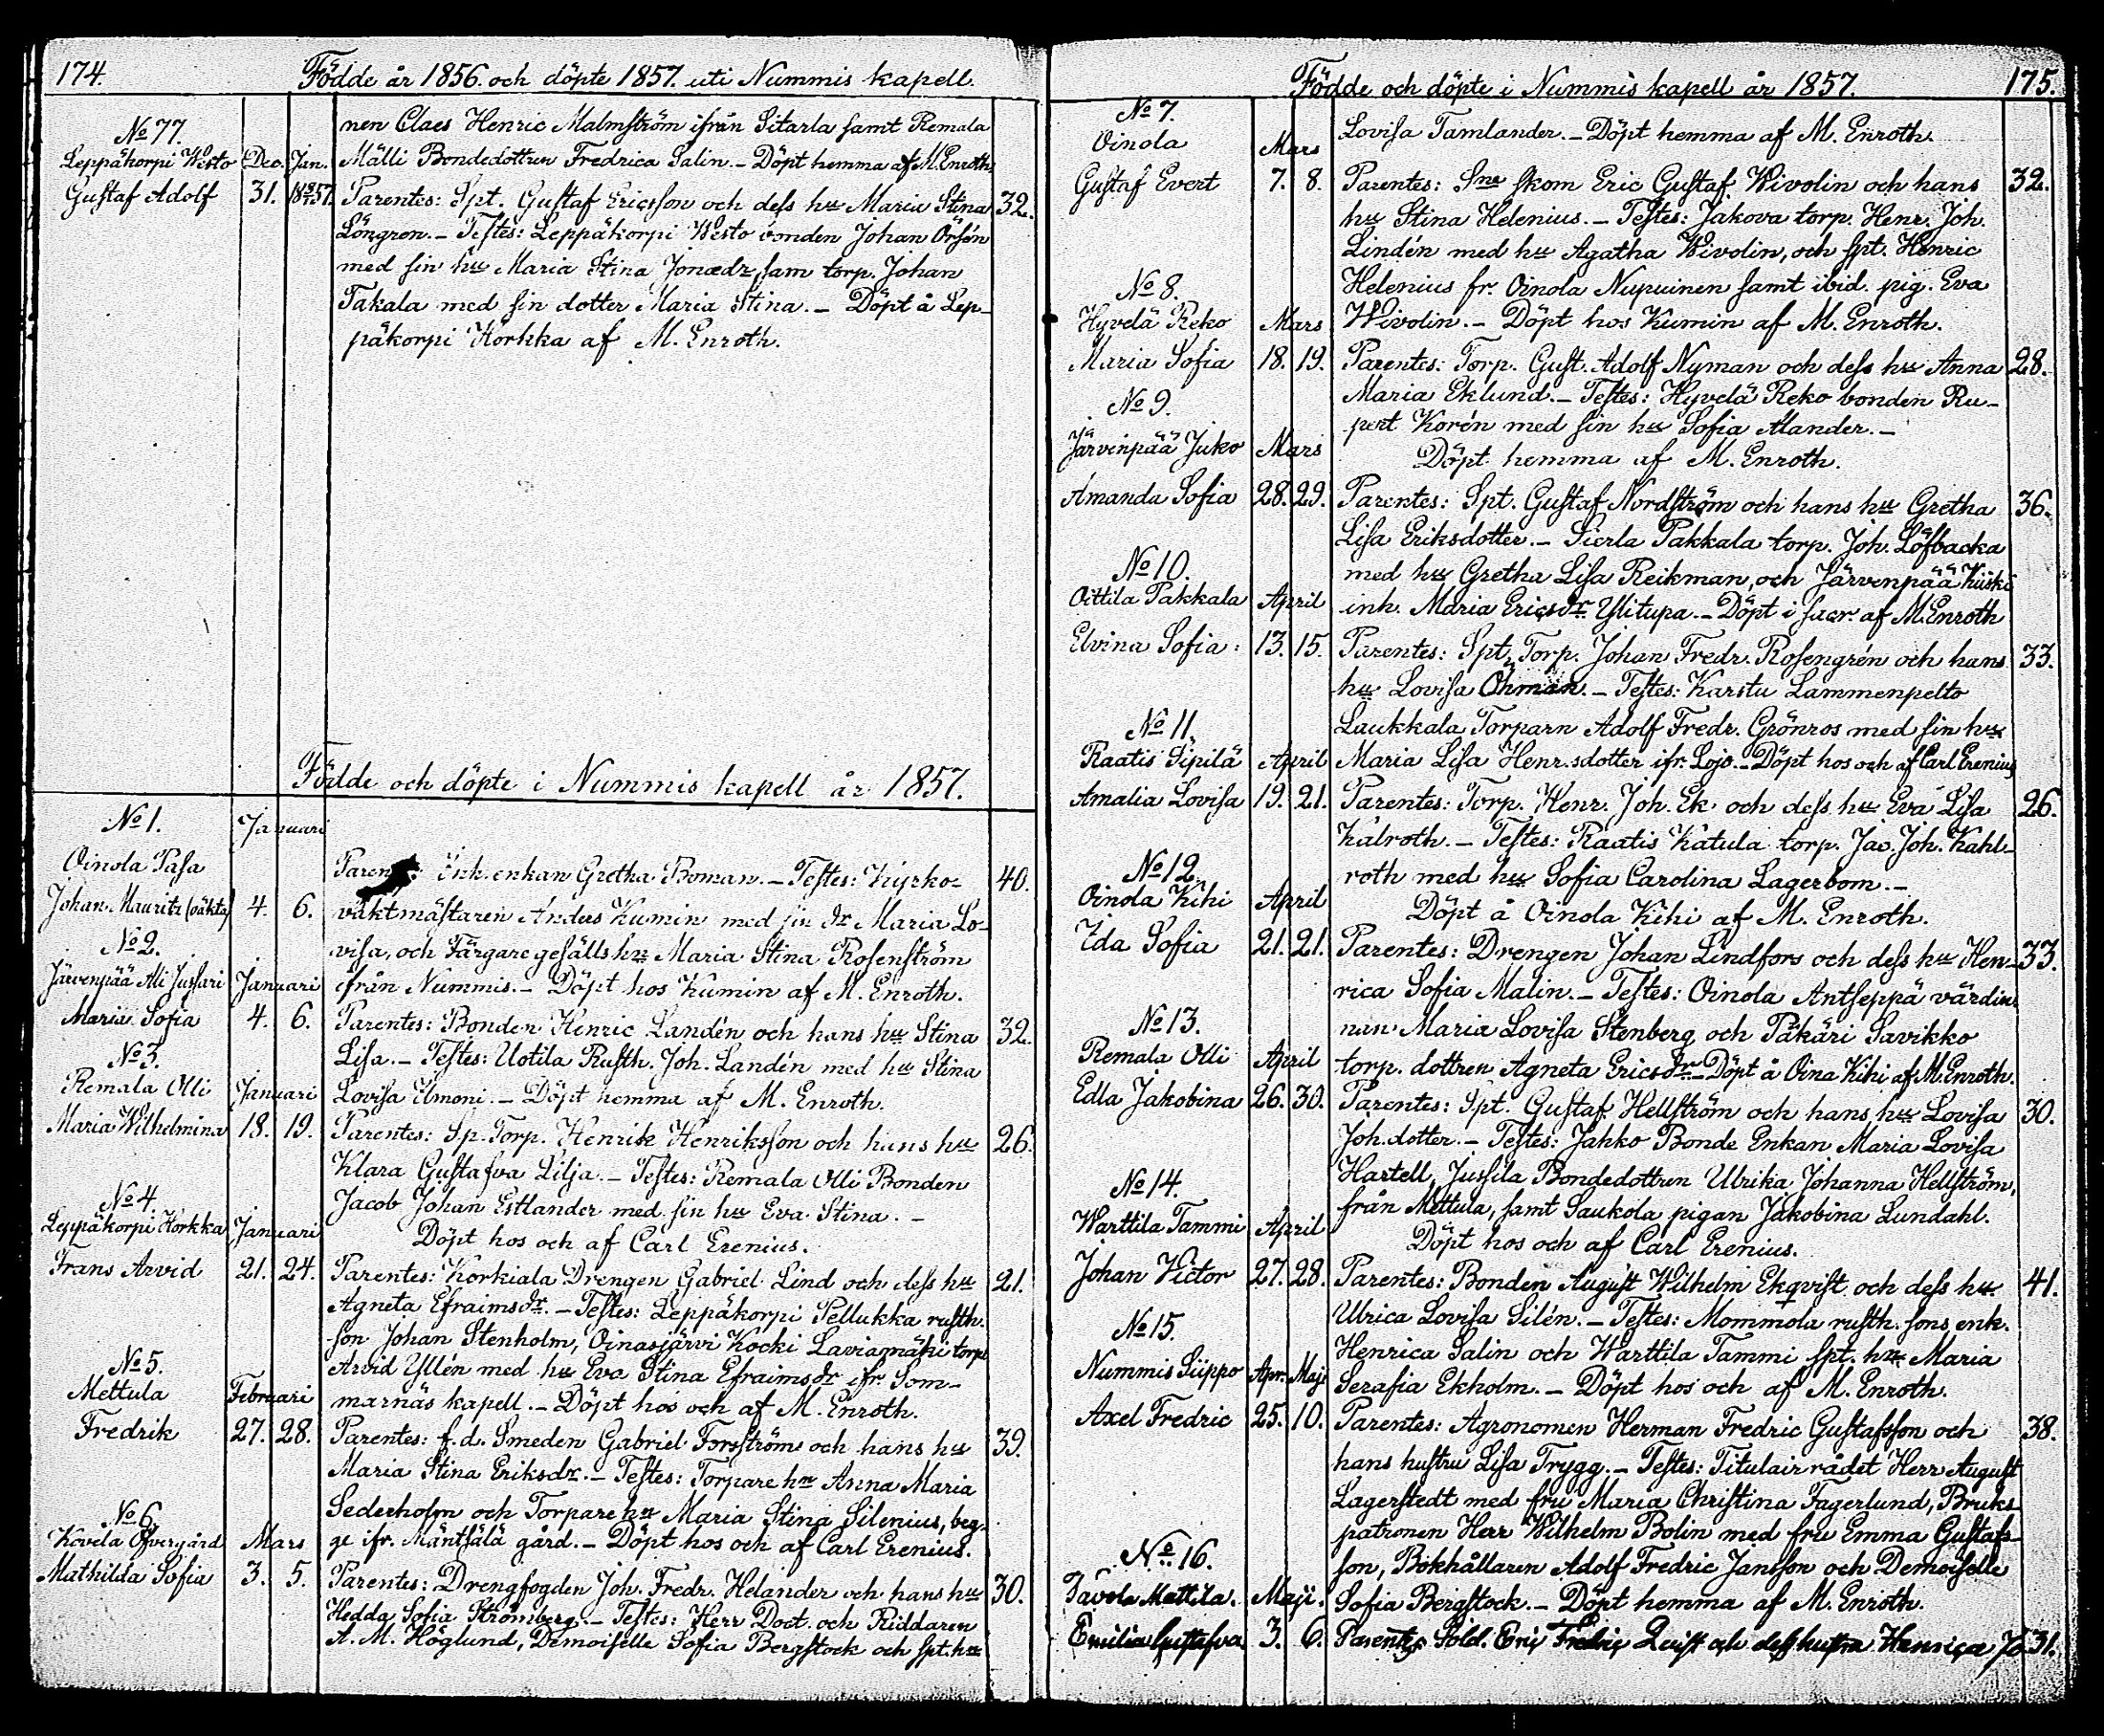 174. Födde år 1856. och döpte 1857. uti Nummis kapell.
nen Claes Henric Malmström ifrån Sitarla samt Remala
No 77.
Leppäkorpi Westo Dec. Jan. Mälli Bondedottren Fredrica Salin. – Döpt hemma af M. Enroth.
Gustaf Adolf 31. 1857. Parentes: Spt. Gustaf Ericsson och dess hu Maria Stina 32.
Löngren. – Testes: Leppäkorpi Westo bonden Johan Örsén
med sin hu Maria Stina Jonædr, sam torp. Johan
Takala med sin dotter Maria Stina. – Döpt å Lep-
päkorpi Korkka af M. Enroth.
Födde och döpte i Nummis kapell år 1857.
No 1. Januari
Oinola Pasa Enk. enkan Gretha Boman. – Testes: Kyrko- 40.
Johan Mauritz (oäkta) 4. 6. vaktmästaren Anders Kumin med sin dr Maria Lo-
No 2.
visa, och Färgare gesälls hu Maria Stina Rosenström
Järvenpää Ali Jussari Januari ifrån Nummis. – Döpt hos Kumin af M. Enroth.
Maria Sofia 4. 6. Parentes: Bonden Henric Landén och hans hu Stina 32.
No 3.
Lisa. – Testes: Uotila Rusth. Joh. Landén med hu Stina
Remala Olli Januari Lovisa Elmoni. – Döpt hemma af M. Enroth.
Maria Wilhelmina 18. 19. Parentes: Sp. Torp. Henrik Henriksson och hans hu 26.
Klara Gustafva Lilja. – Testes: Remala Olli Bonden
No 4.
Jacob Johan Estlander med sin hu Eva Stina. –
Leppäkorpi Korkka Januari Döpt hos och af Carl Erenius.
Frans Arvid 21. 24. Parentes: Korkiala Drengen Gabriel Lind och dess hu 21.
Agneta Efraimsdr. – Testes: Leppäkorpi Pellukka rusth.
son Johan Stenholm, Oinasjärvi Kocki Laviamäki torp.
No 5.
Arvid Yllén med hu Eva Stina Efraimsdr ifr Som-
Mettula Februari marnäs kapell. – Döpt hos och af M. Enroth.
Fredrik 27. 28. Parentes: f.d. Smeden Gabriel Forsström och hans hu 39.
Maria Stina Eriksdr. – Testes: Torpare hu Anna Maria
Sederholm och Torpare hu Maria Stina Silenius, beg-
No 6.
Kovela Öfvergård Mars ge ifr. Mäntsälä gård. – Döpt hos och af Carl Erenius.
Mathilda Sofia 3. 5. Parentes: Drengfogden Joh. Fredr. Helander och hans hu 30.
Hedda Sofia Strömberg. – Testes: Herr Doct. och Riddaren
A. M. Höglund, Demoiselle Sofia Bergstock och spt. hu
Födde och döpte i Nummis kapell år 1857. 175.
No 7.
Oinola Mars Lovisa Tamlander. – Döpt hemma af M. Enroth.
Gustaf Evert 7. 8. Parentes: Sne skom Eric Gustaf Wivolin och hans 32.
hu Stina Helenius. – Testes: Jakova torp. Henr. Joh.
Lindén med hu Agatha Wivolin, och spt. Henric
No 8.
Helenius fr. Oinola Nupuinen samt ibid. pig. Eva
Hyvelä Reko Mars Wivolin. – Döpt hos Kumin af M. Enroth.
Maria Sofia 18. 19. Parentes: Torp. Gust. Adolf Nyman och dess hu Anna 28.
No 9.
Maria Eklund. – Testes: Hyvelä Reko bonden Ru-
pert Korén med sin hu Sofia Alander. –
Järvinpää Juko Mars Döpt hemma af M. Enroth.
Amanda Sofia 28. 29. Parentes: Spt. Gustaf Nordström och hans hu Gretha 36.
Lisa Eriksdotter. – Pierla Pakkala torp. Joh. Löfbacka
No 10.
med hu Gretha Lisa Reikman, och Järvenpää Kiiski
Oittila Pakkala April inh. Maria Ericsdr Ylitupa. – Döpt i sacr. af M. Enroth
Elvina Sofia: 13. 15. Parentes: Spt. Torp. Johan Fredr. Rosengrén och hans 33.
hu Lovisa Öhman. – Testes: Karstu Lammenpelto
No 11.
Laukkala Torparn Adolf Fredr. Grönros med sin hu
Raatis Sipilä April Maria Lisa Henr.sdotter ifr. Lojo. – Döpt hos och af Carl Erenius
Amalia Lovisa 19. 21. Parentes: Torp. Henr. Joh. Ek och dess hu Eva Lisa 26.
Kälroth. – Testes: Raatis Kätula torp. Jac. Joh. Kahl-
No 12.
roth med hu Sofia Carolina Lagerbom. –
Oinola Kihi April Döpt å Oinola Kihi af M. Enroth.
Ida Sofia 21. 21. Parentes: Drengen Johan Lindfors och dess hu Hen- 33.
rica Sofia Malin. – Testes: Oinola Antseppä värdin-
No 13.
nan Maria Lovisa Stenberg och Päkäri Savikko
Remala Olli April torp. dottren Agneta Ericsdr. – Döpt å Oina Kihi af M. Enroth.
Edla Jakobina 26. 30. Parentes: Spt. Gustaf Hellström och hans hu Lovisa 30.
Joh. dotter. – Testes: Jahko Bonde Enkan Maria Lovisa
No 14.
Hartell, Jussila Bondedottren Ulrika Johanna Hellström,
från Mettula, samt Saukola pigan Jakobina Lundahl.
Warttila Tammi April Döpt hos och af Carl Erenius.
Johan Victor 27. 28. Parentes: Bonden August Wilhelm Ekqvist och dess hu 41.
Ulrica Lovisa Silén. – Testes: Mommola rusth. sons enk.
No 15.
Henrica Salin och Warttila Tammi spt. hu Maria
Nummis Siippo Apr. Maji Serafia Ekholm. – Döpt hos och af M. Enroth.
Axel Fredric 25. 10. Parentes: Agronomen Herman Fredric Gustafsson och 38.
hans hustru Lisa Trygg. – Testes: Titulairrådet Herr August
Lagerstedt med fru Maria Christina Fagerlund, Bruks-
patronen Herr Wilhelm Bolin med fru Emma Gustafs-
No 16.
son, Bokhållaren Adolf Fredric Jansson och Demoiselle
Tavola Mattila. Maji. Sofia Bergstock. – Döpt hemma af M. Enroth.
Emilia Gustafva 3. 6. Parentes Sold. Eric Fredric Quist och dess hustru Henrica Jo 31.